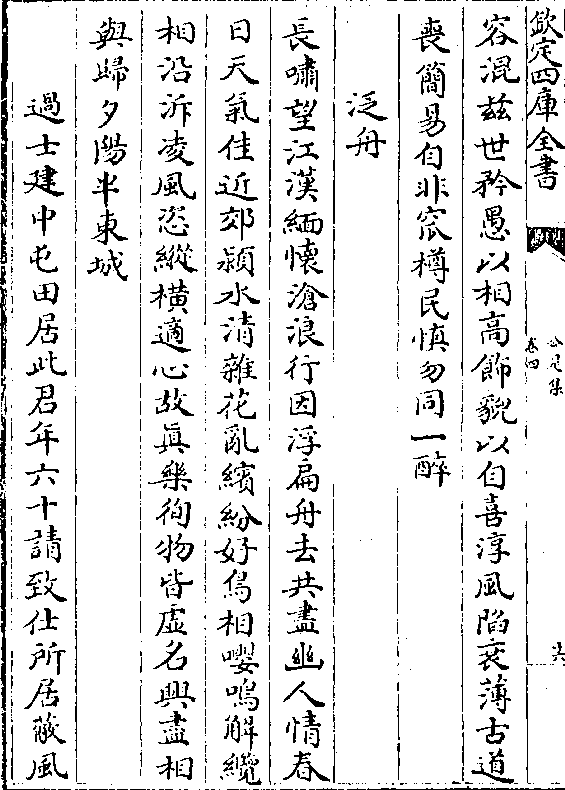 欽定四庫全書
公是集
卷四
十六
容混兹世矜愚以相高飾貌以自喜淳風陷衰薄古道
喪簡易自非宗樽民慎勿同一醉
泛舟
長嘯望江漢緬懷滄浪行因浮扁舟去共盡幽人情春
日天氣佳近郊潁水清雜花亂繽紛好鳥相嚶鳴解纜
相沿泝凌風恣縱横適心故真樂徇物皆虚名興盡相
與歸夕陽半東城
過士建中屯田居此君年六十請致仕所居蔽風